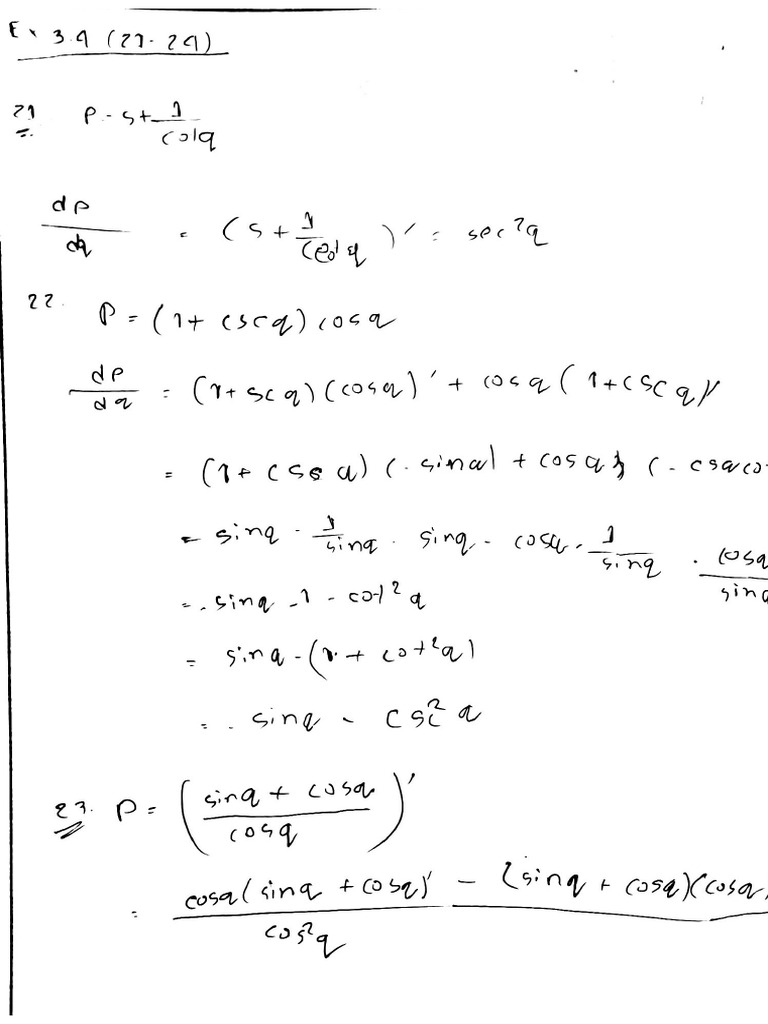 Ex 3.9 (21-29)
21 P = 5 + 1/cot q
dp/dq = (5 + 1/cot q)' = sec²q
22. P = (1 + csc q) cos q
dp/dq = (1 + sc q)(cos q)' + cos q (1 + csc q)'
= (1 + csc q) (- sin q) + cos q (- csq co
= sin q - 1/sin q · sin q - cos q · 1/sin q · cos q/sin q
= - sin q - 1 - cot² q
= sin q - (1 + cot² q)
= - sin q - csc² q
23. P = (sin q + cos q / cos q)'
= cos q (sin q + cos q)' - (sin q + cos q)(cos q / cos² q